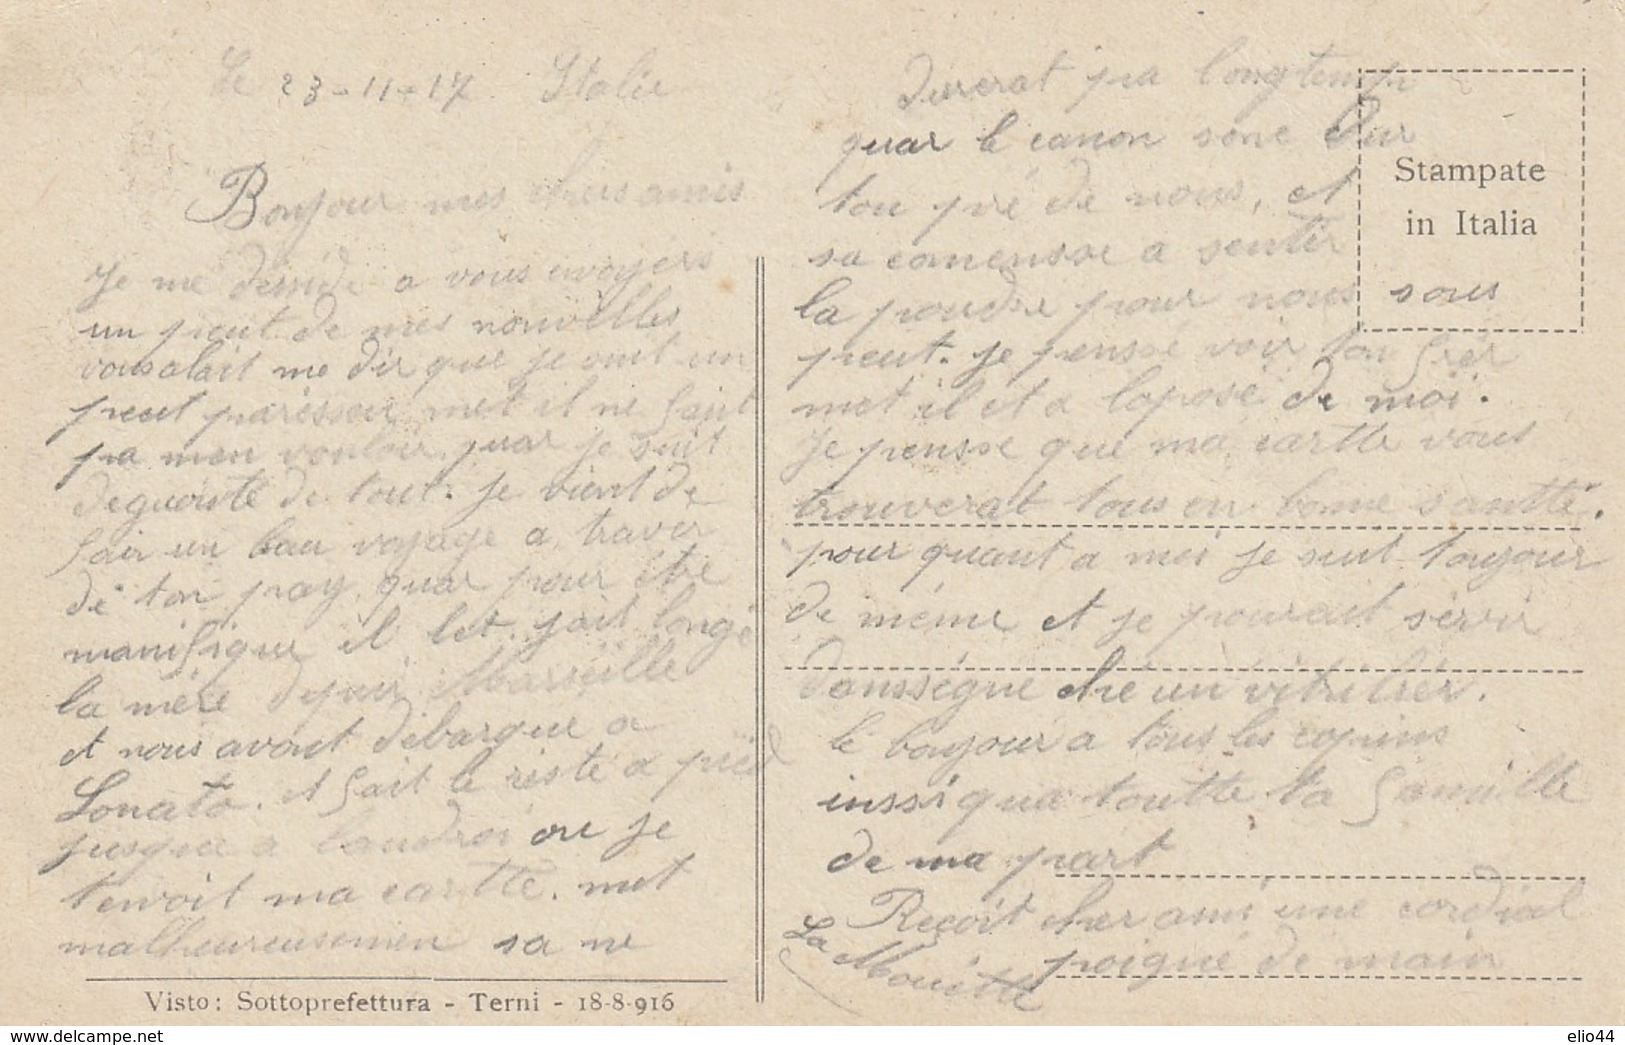 Le 23-11-17 Italie
Bonjour mes chers amis
Je me deside a vous envoyers
un peut de mes nouvelles
vous alait me dir que je suit un
peut paresseu met il ne faut
pa men vouloir quar je suit
degoute de tout. je vient de
fair un bau voyage a traver
de ton pay quar pour être
manifique il let jait longé
la mère depuis Marseille
et nous avont débarque a
Lonato. et fait le reste a pied
jusque a ou je
tenvoit ma cartte. met
malheureusemen sa ne
Visto: Sottoprefettura - Terni - 18-8-916
durerat pa longtemp
quar le canon sone dur
tou pré de nous, et
sa comensse a sentir
la poudre pour nous sous
peut. je pensse voir ton frér
met il et a loposé de moi.
Je pensse que ma cartte vous
trouverat tous en bonne santté.
pour quant a moi je suit toujour
de même et je pourait servir
danssegne che un vitrilier.
le bonjour a tous les copins
inssi que toutte ta famille
de ma part
Reçoit cher ami une cordial
poigné de main
La Mouette
Stampate
in Italia
elio44